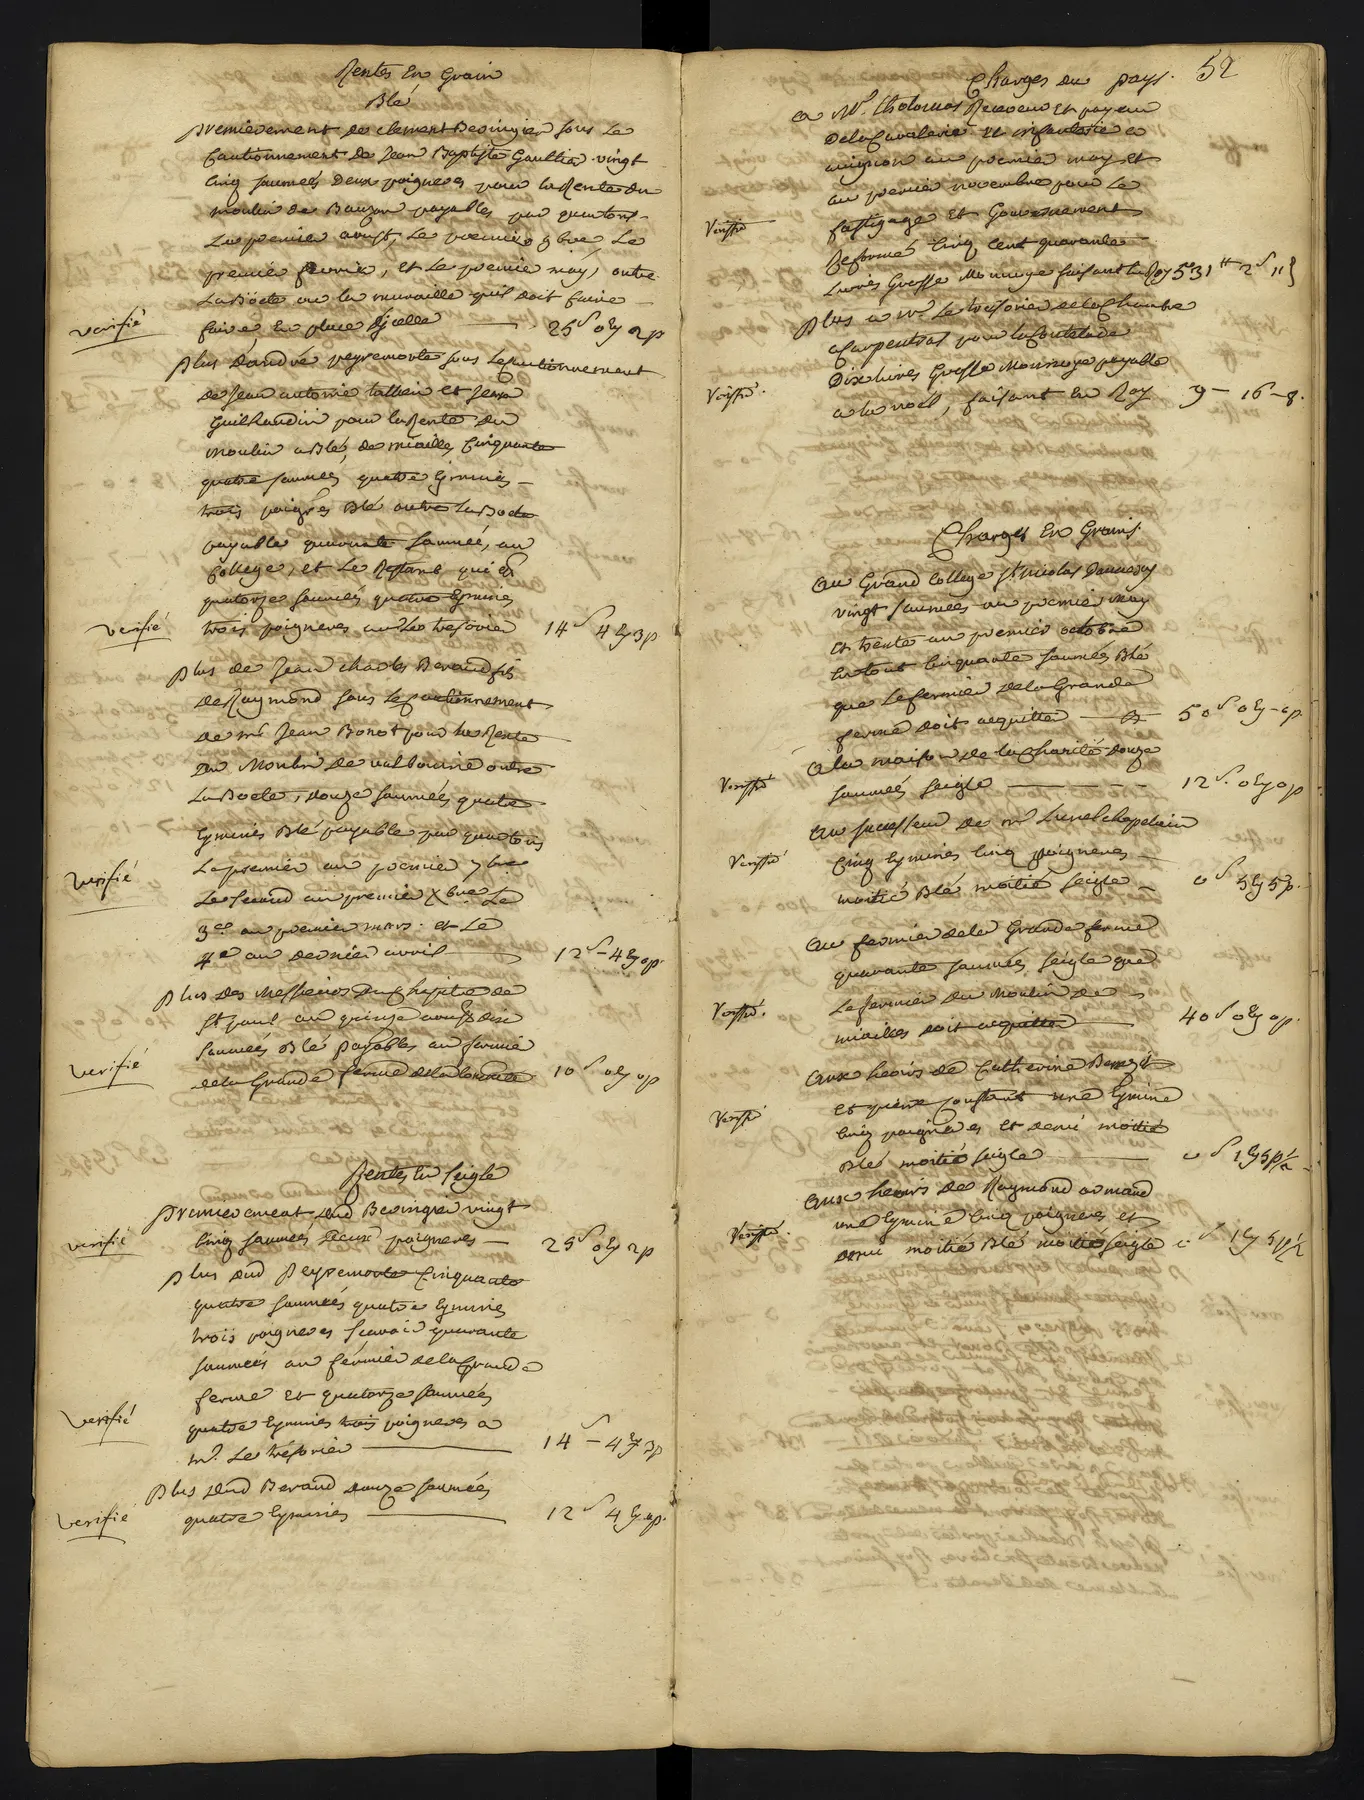 Rentes En Grain
Blé
premierement de clement Bevingier sous Le
Cautionnement de Jean Baptiste Gaultier vingt
cinq saumées Deux poigneres pour la Rente du
moulin de Bauzon payables par quartons
Le premier aoust, Le premier 9bre Le
premier fevrier, et Le premier may, outre
faire, En place
verifié
25 S 0 Ey 2p
plus d'andré peyremorte sous Le Cautionnement
de Jean antoine tallien et Jean
Guilhaudin pour la Rente du
moulin a Blé, de miailles Cinquante
quatre saumées quatre Eymines
trois poignes Blé outre La Boete
payable quarante saumées, au
College, et Le Restant qui est
quatorze saumées quatre Eymines
verifié
trois poigneres au Sr tresorier 14 S 4 Ey 3p
plus de Jean charles Beraud fils
de Raymond sous Le Cautionnement
de mr Jean Bonot pour la Rente
du Moulin de valbourine outre
La Boete, douze saumées quatre
Eymines Blé payable par quartons
verifié
Le premier au premier 7bre
Le Second au premier Xbre Le
3e au premier mars et Le
4e au dernier avril 12 S - 4 Ey 0p
plus des Messieurs du Chapitre de
St paul au quinze aoust dix
saumées Blé payables au fermier
verifié
de la Grande ferme 10 S 0 Ey 0p
Rentes En Seigle
premierement dud Bevingier vingt
verifié
cinq saumées deux poigneres 25 S 0 Ey 2p
plus dud Peyremorte Cinquante
quatre saumées quatre Eymines
trois poigneres scavoir quarante
saumées au fermier de la Grande
ferme et quatorze saumées
verifié
quatre Eymines trois poigneres a
mr. Le trésorier 14 S - 4 Ey 3p
plus dud Beraud douze saumées
verifié
quatre Eymines 12 S 4 Ey 0p.
52
Charges du pays.
a Mr. tholomas Receveur Et payeur
De la Cavalerie Et infanterie a
avignon au premier may et
au premier novembre pour Le
Veriffié
fastigage et Gouvernement
Reformé Cinq Cent quarante
Livres Grosse Monnoye faisant du Roy 531 tt 2 S 11 d
plus a mr Le tresorier de la Chambre
a Carpentras pour
Dix Livres Grosse Monnoye payable
Veriffié.
a la noël, faisant du Roy 9 - 16 - 8.
Charges En Grains.
Au Grand College St Nicolas Dannecy
vingt saumées au premier May
Et trente au premier octobre
En tout Cinquante saumées Blé
que Le fermier de la Grande
ferme doit acquitter 50 S. 0 Ey - 0p.
a la maison de la Charité douze
Veriffié
saumées seigle 12 S. 0 Ey 0p
Au successeur de mr Lunel chapelain
Veriffié
Cinq Eymines Cinq poigneres
moitié Blé moitié seigle 0 S 5 Ey 5p.
Au fermier de la Grande ferme
quarante saumées seigle que
Veriffié.
Le fermier du Moulin de
miailles doit acquitter 40 S 0 Ey 0p.
Aux hoirs de Catherine
Et pierre Constant une Eymine
Veriffié
Cinq poigneres et demi moitié
Blé moitié seigle 0 S 1 Ey 5p 1/2
Aux hoirs de Raymond armand
Veriffié.
une Eymine Cinq poigneres et
demi moitié Blé moitié seigle 0 S 1 Ey 5p 1/2